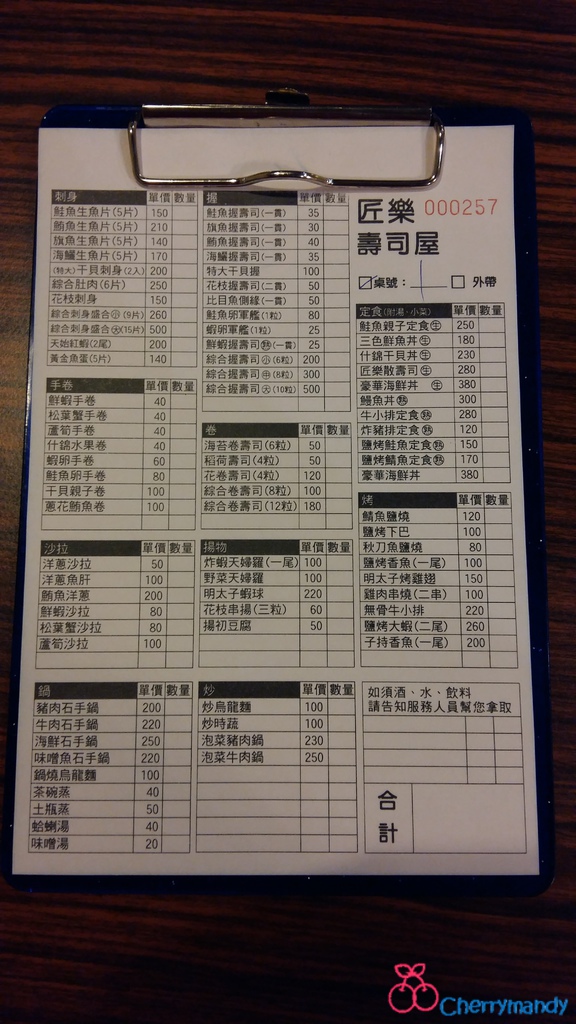 匠樂 000257
壽司屋
桌號： 外帶
刺身 單價 數量
鮭魚生魚片(5片) 150
鮪魚生魚片(5片) 210
旗魚生魚片(5片) 140
海鱺生魚片(5片) 170
(特大)干貝刺身(2入) 200
綜合肚肉(6片) 250
花枝刺身 150
綜合刺身盛合㊙小(9片) 260
綜合刺身盛合(15片) 500
天始紅蝦(2尾) 200
黃金魚蛋(5片) 140
手卷 單價 數量
鮮蝦手卷 40
松葉蟹手卷 40
蘆筍手卷 40
什錦水果卷 40
蝦卵手卷 60
鮭魚卵手卷 80
干貝親子卷 100
蔥花鮪魚卷 100
沙拉 單價 數量
洋蔥沙拉 50
洋蔥魚肝 100
鮪魚洋蔥 200
鮮蝦沙拉 80
松葉蟹沙拉 80
蘆筍沙拉 100
鍋 單價 數量
豬肉石手鍋 200
牛肉石手鍋 220
海鮮石手鍋 250
味噌魚石手鍋 220
鍋燒烏龍麵 100
茶碗蒸 40
土瓶蒸 50
蛤蜊湯 40
味噌湯 20
握 單價 數量
鮭魚握壽司(一貫) 35
旗魚握壽司(一貫) 30
鮪魚握壽司(一貫) 40
海鱺握壽司(一貫) 35
特大干貝握 100
花枝握壽司(二貫) 50
比目魚側緣(一貫) 50
鮭魚卵軍艦(1粒) 80
蝦卵軍艦(1粒) 25
鮮蝦握壽司(熟)(一貫) 25
綜合握壽司(小)(6粒) 200
綜合握壽司(中)(8粒) 300
綜合握壽司(大)(10粒) 500
卷 單價 數量
海苔卷壽司(6粒) 50
稻荷壽司(4粒) 50
花卷壽司(4粒) 120
綜合卷壽司(8粒) 100
綜合卷壽司(12粒) 180
揚物 單價 數量
炸蝦天婦羅(一尾) 100
野菜天婦羅 100
明太子蝦球 220
花枝串揚(三粒) 60
揚初豆腐 50
炒 單價 數量
炒烏龍麵 100
炒時蔬 100
泡菜豬肉鍋 230
泡菜牛肉鍋 250
定食(附湯·小菜) 單價 數量
鮭魚親子定食(生) 250
三色鮮魚丼(生) 180
什錦干貝丼(生) 230
匠樂散壽司(生) 280
豪華海鮮丼(生) 380
鰻魚丼(熟) 300
牛小排定食(熟) 280
炸豬排定食(熟) 120
鹽烤鮭魚定食(熟) 150
鹽烤鯖魚定食(熟) 170
豪華海鮮丼 380
烤 單價 數量
鯖魚鹽燒 120
鹽烤下巴 100
秋刀魚鹽燒 80
鹽烤香魚(一尾) 100
明太子烤雞翅 150
雞肉串燒(二串) 100
無骨牛小排 220
鹽烤大蝦(二尾) 260
子持香魚(一尾) 200
如須酒、水、飲料
請告知服務人員幫您拿取
合計
Cherrymandy